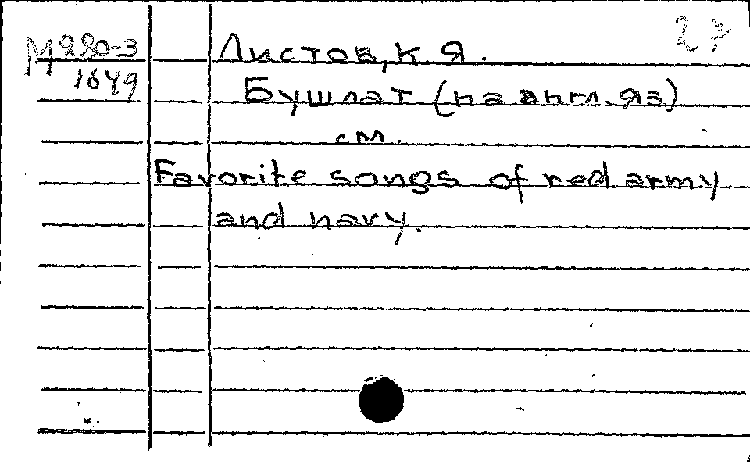 27
М980-3 Листов, К. Я.
1649 Бушлат (на англ. яз)
см.
Favorite songs of red army
and navy.